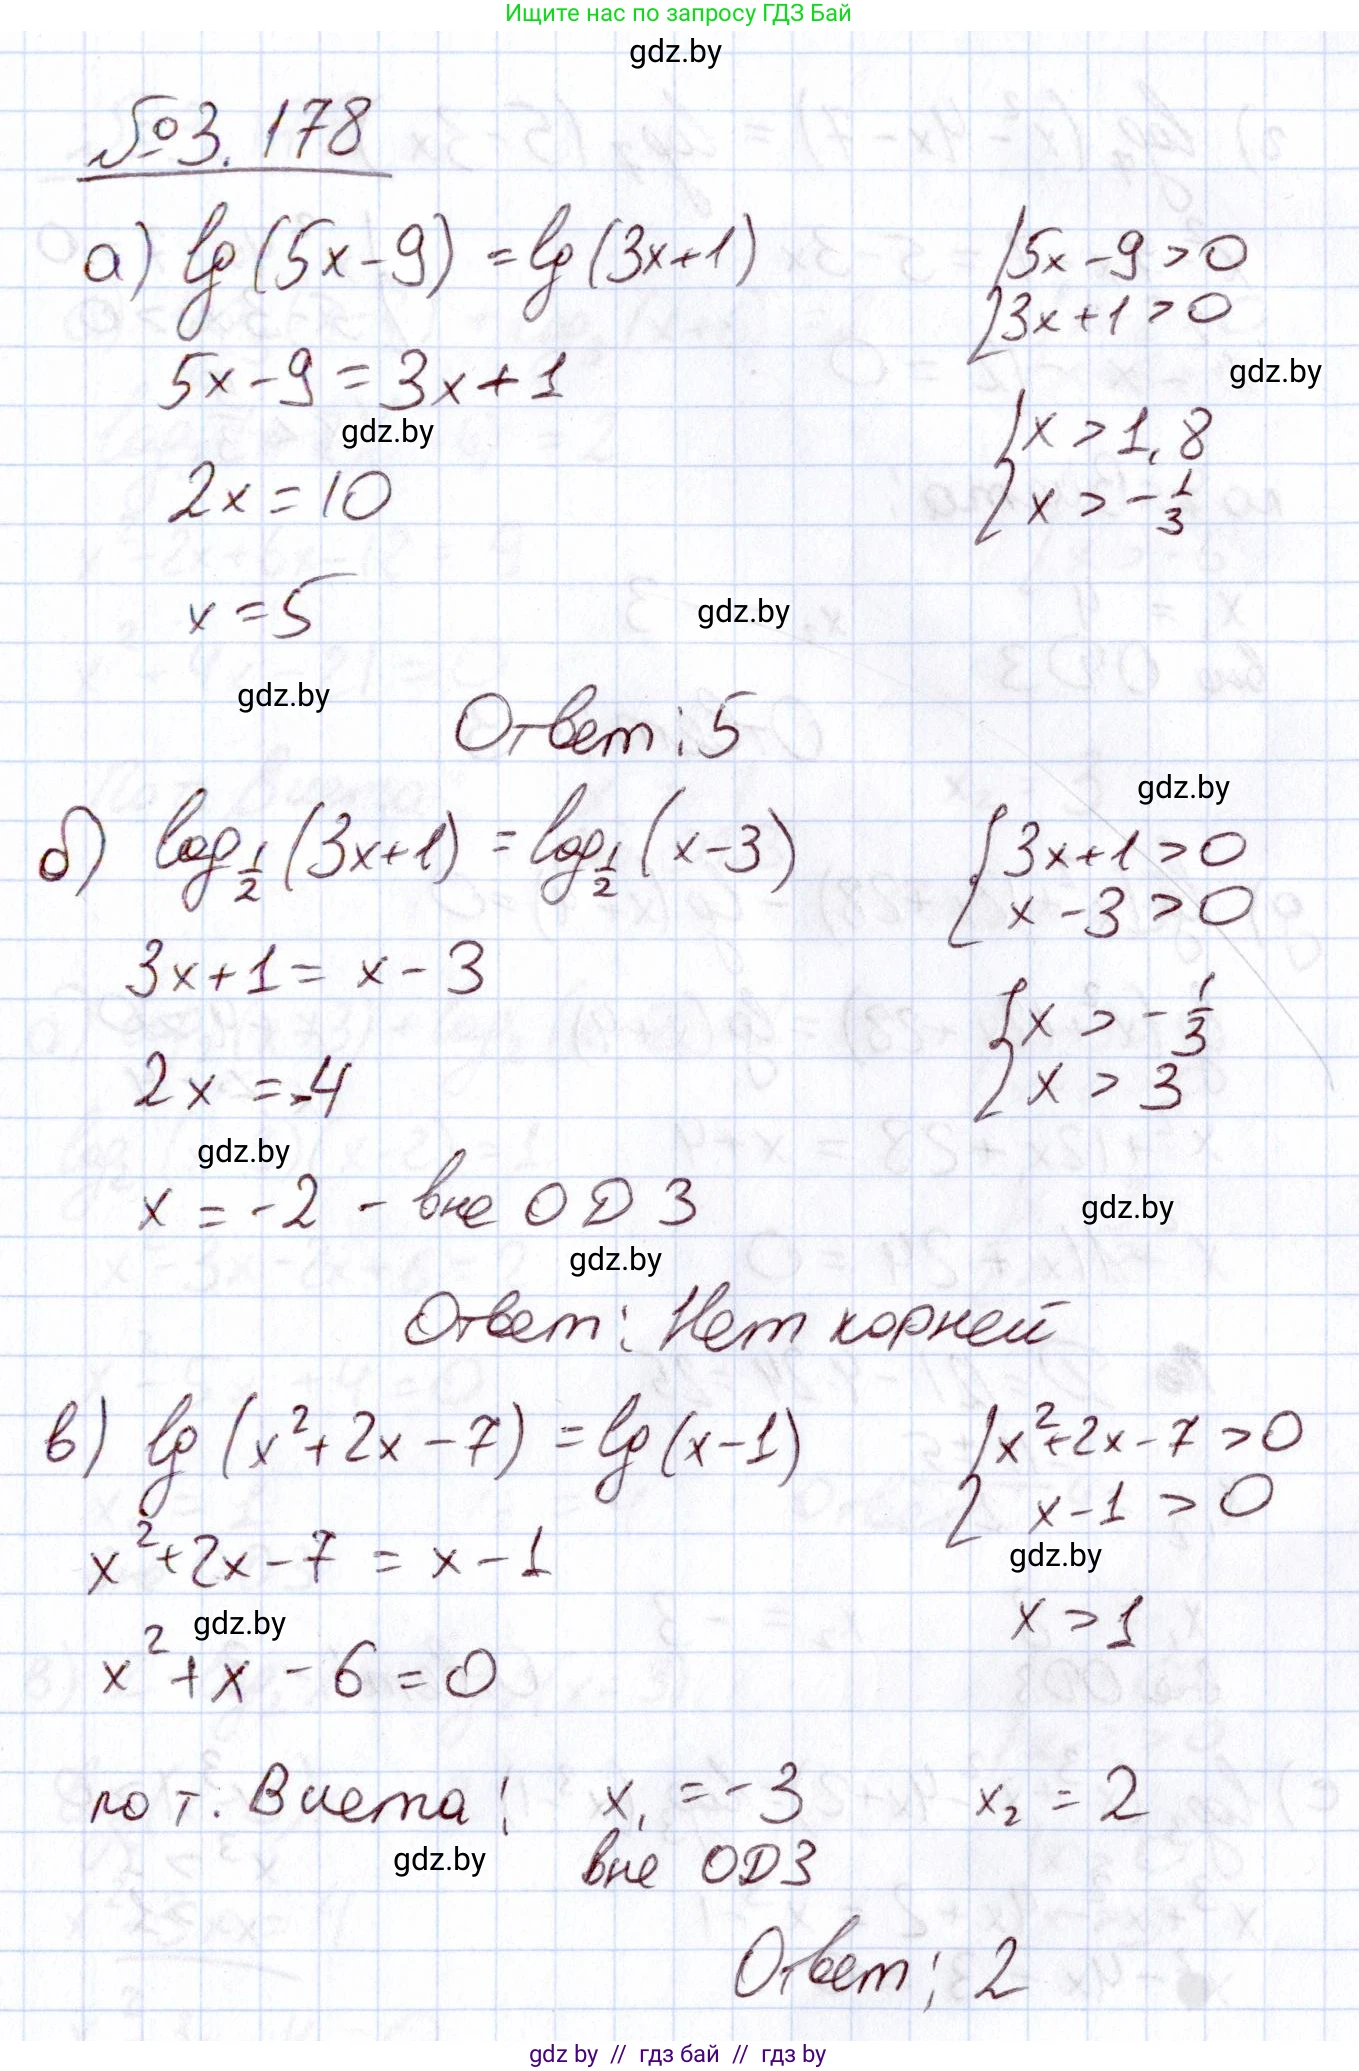 Ищите нас по запросу ГДЗ Бай
gdz.by
№3.178
а) lg(5x-9) = lg(3x+1) { 5x-9>0
3x+1>0
gdz.by
5x-9=3x+1
gdz.by
{ x > 1,8
x > -1/3
2x=10
x=5
gdz.by
gdz.by
Ответ: 5
gdz.by
б) log_{1/2}(3x+1) = log_{1/2}(x-3) { 3x+1>0
x-3>0
3x+1 = x-3
{ x > -1/3
x > 3
2x = -4
gdz.by
x = -2 - вне ОДЗ
gdz.by
gdz.by
Ответ: Нет корней
в) lg(x²+2x-7) = lg(x-1) { x²+2x-7>0
x-1 > 0
x²+2x-7 = x-1
gdz.by
x > 1
gdz.by
x²+x-6=0
по т. Виета: x₁ = -3 x₂ = 2
вне ОДЗ
gdz.by
Ответ: 2
gdz by // гдз бай // гдз by